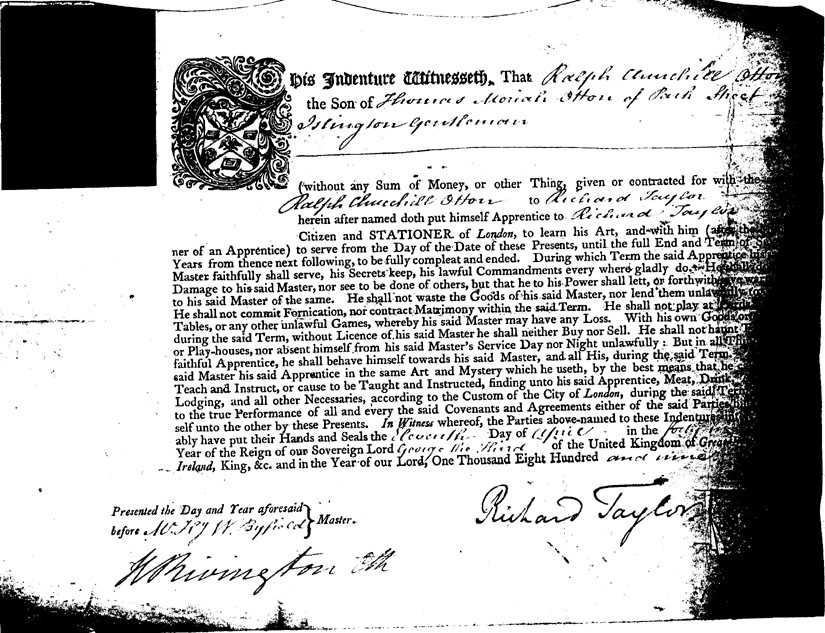 This Indenture Witnesseth, That Ralph Churchill Otton
the Son of Thomas Moriah Otton of Park Street
Islington Gentleman
(without any Sum of Money, or other Thing, given or contracted for with the
Ralph Churchill Otton to Richard Taylor
herein after named doth put himself Apprentice to Richard Taylor
Citizen and STATIONER of London, to learn his Art, and with him (after the
ner of an Apprentice) to serve from the Day of the Date of these Presents, until the full End and Term of
Years from thence next following, to be fully compleat and ended. During which Term the said Apprentice his
Master faithfully shall serve, his Secrets keep, his lawful Commandments every where gladly do. He shall
Damage to his said Master, nor see to be done of others, but that he to his Power shall lett, or forthwith
to his said Master of the same. He shall not waste the Goods of his said Master, nor lend them unlawfully
He shall not commit Fornication, nor contract Matrimony within the said Term. He shall not play at
Tables, or any other unlawful Games, whereby his said Master may have any Loss. With his own Goods or
during the said Term, without Licence of his said Master he shall neither Buy nor Sell. He shall not haunt
or Play-houses, nor absent himself from his said Master's Service Day nor Night unlawfully: But in all
faithful Apprentice, he shall behave himself towards his said Master, and all His, during the said Term.
said Master his said Apprentice in the same Art and Mystery which he useth, by the best means that he
Teach and Instruct, or cause to be Taught and Instructed, finding unto his said Apprentice, Meat, Drink,
Lodging, and all other Necessaries, according to the Custom of the City of London, during the said Term
to the true Performance of all and every the said Covenants and Agreements either of the said Parties
self unto the other by these Presents. In Witness whereof, the Parties above-named to these Indentures
ably have put their Hands and Seals the eleventh Day of April in the
Year of the Reign of our Sovereign Lord George the Third of the United Kingdom of Great
Ireland, King, &c. and in the Year of our Lord, One Thousand Eight Hundred and nine
Presented the Day and Year aforesaid
before Mr. W. Byfield } Master.
Richard Taylor
Rivington Clk